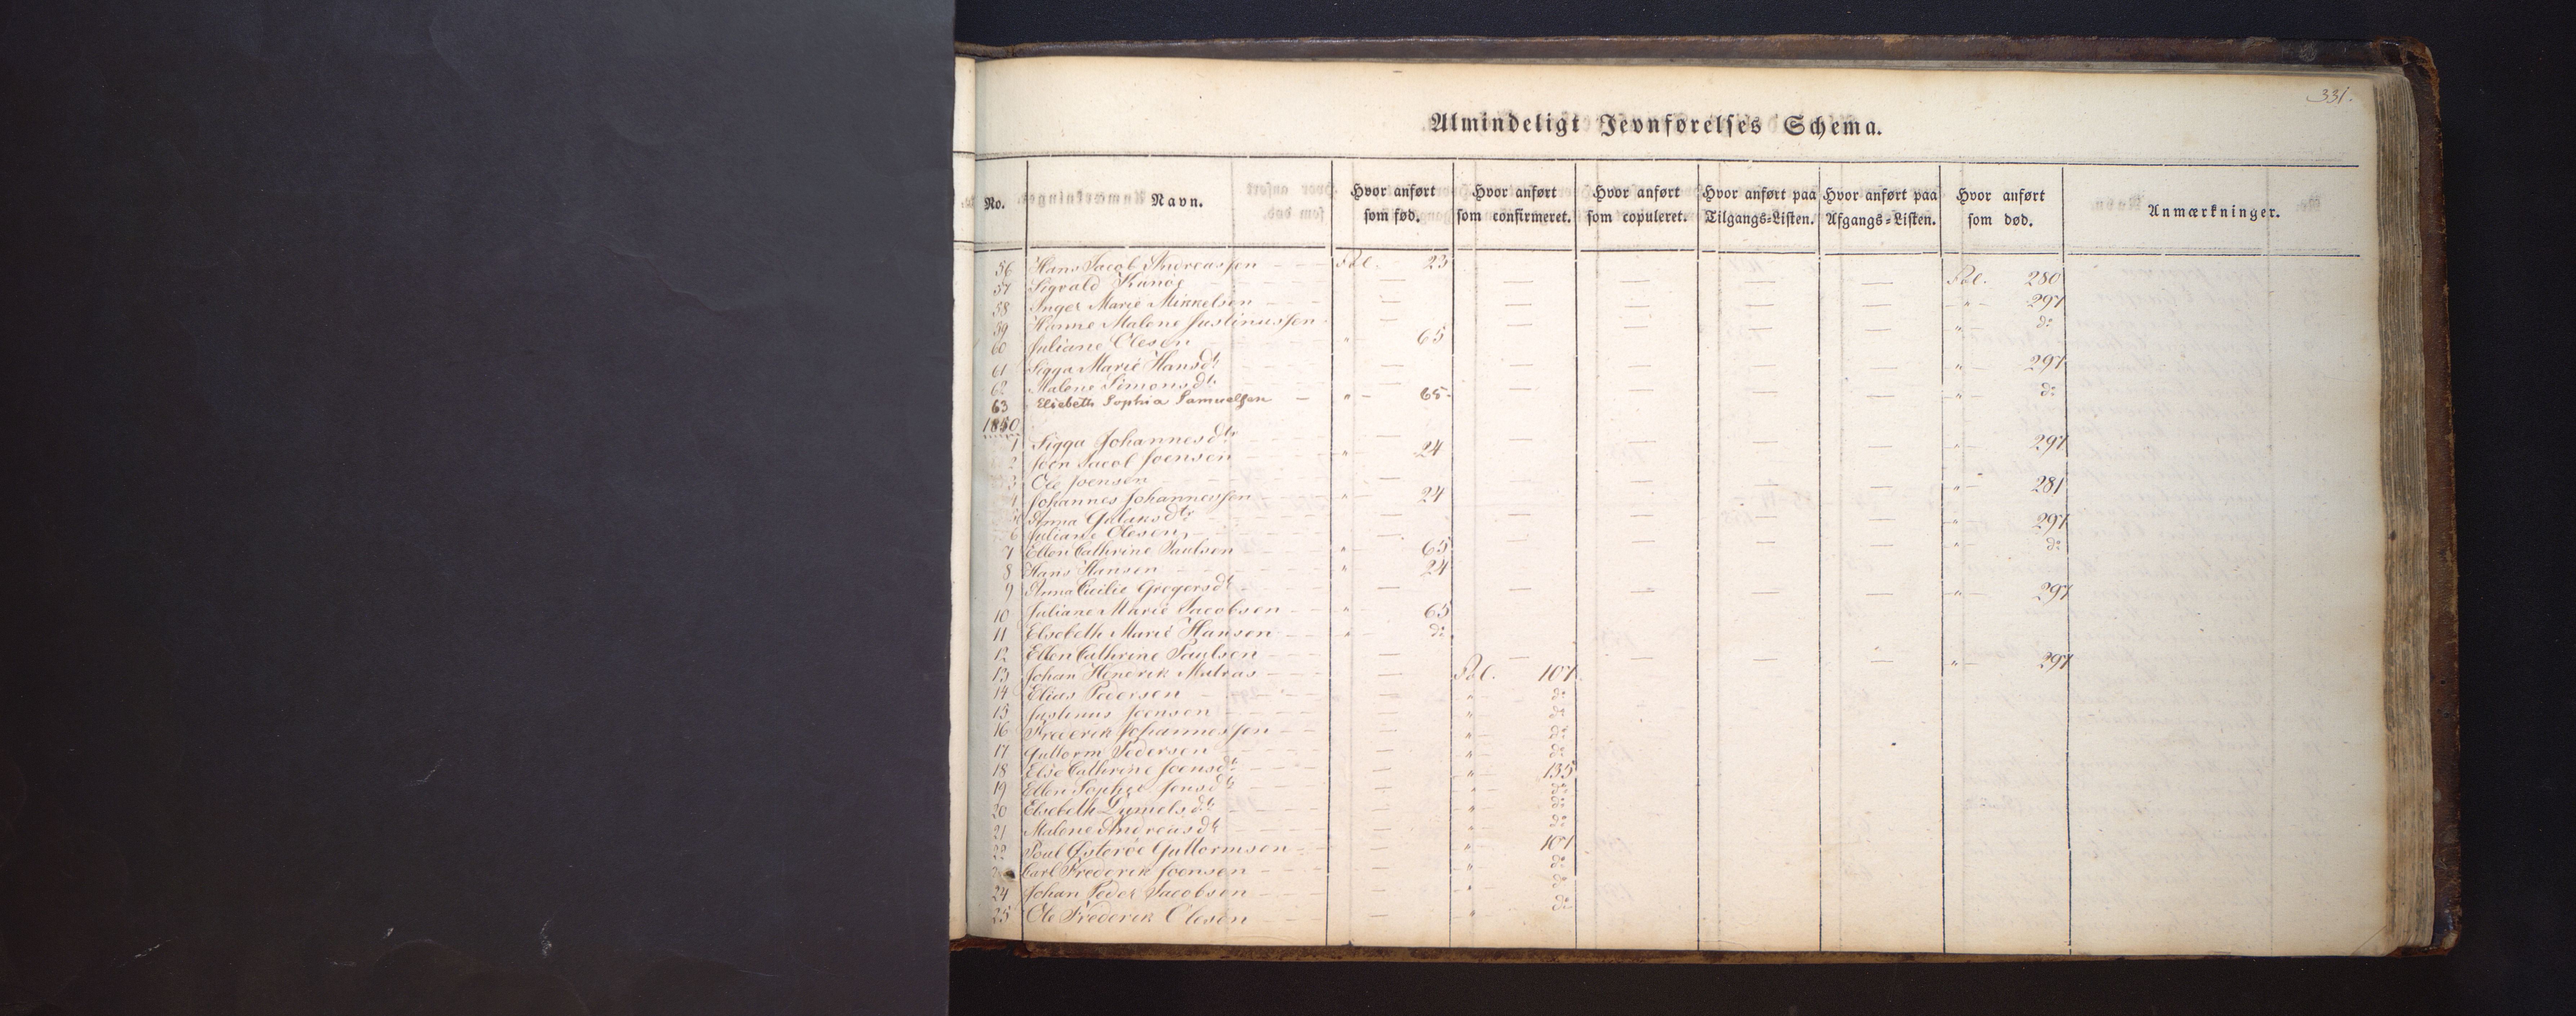 331.
Almindeligt Jevnførelses Schema.
No. Navn. Hvor anført som fød. Hvor anført som confirmeret. Hvor anført som copuleret. Hvor anført paa Tilgangs=Listen. Hvor anført paa Afgangs=Listen. Hvor anført som død. Anmærkninger.
56 Hans Jacob Andreassen Fol. 23
57 Sigvald Kunoe — — — — — Fol. 280
58 Inger Marie Mikkelsen — — — — — " 297
59 Hanne Malene Justinussen — — — — — " do
60 Juliane Olesen " 65
61 Sigga Marie Hansdtr — — — — — " 297
62 Malene Simonsdtr — — — — — " do
63 Elsebeth Sophia Samuelsen " 65
1850
1 Sigga Johannesdtr — — — — — " 297
2 Joen Jacob Joensen " 24
3 Ole Joensen — — — — — " 281
4 Johannes Johannessen " 24
5 Anna dtr — — — — — " 297
6 Juliane Olesen — — — — — " do
7 Ellen Cathrine Paulsen " 65
8 Hans Hansen " 24
9 Anna Cicilie Gregersdtr — — — — — " 297
10 Juliane Marie Jacobsen " 65
11 Elsebeth Marie Hansen " do
12 Ellen Cathrine Paulsen — — — — — " 297
13 Johan Hendrik Matras — Fol. 107
14 Elias Pedersen — " do
15 Justinus Joensen — " do
16 Frederik Johannessen — " do
17 Guttorm Pedersen — " do
18 Else Cathrine Joensdtr — " 135
19 Ellen Sophie Jensdtr — " do
20 Elsebeth dtr — " do
21 Malene Andreasdtr — " do
22 Poul Østerøe Guttormsen — " 107
Carl Frederik Joensen — " do
24 Johan Peder Jacobsen — " do
25 Ole Frederik Olesen — " do